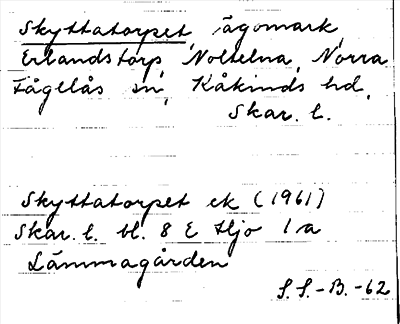 Skyttatorpet, ägomark,
Erlandstorp, Noltelna, Norra
Fågelås sn, Kåkinds hd,
Skar. l.
Skyttatorpet ek (1961)
Skar. l. bl. 8 E Hjo 1a
Lämmagården
S.S.-B.-62